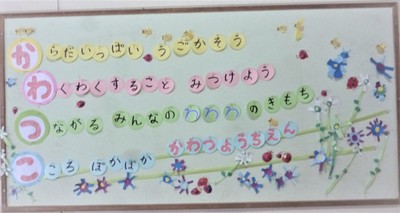 からだいっぱい うごかそう
わくわくすること みつけよう
つながる みんなの わわわ のきもち
こころ ぽかぽか
かわつようちえん